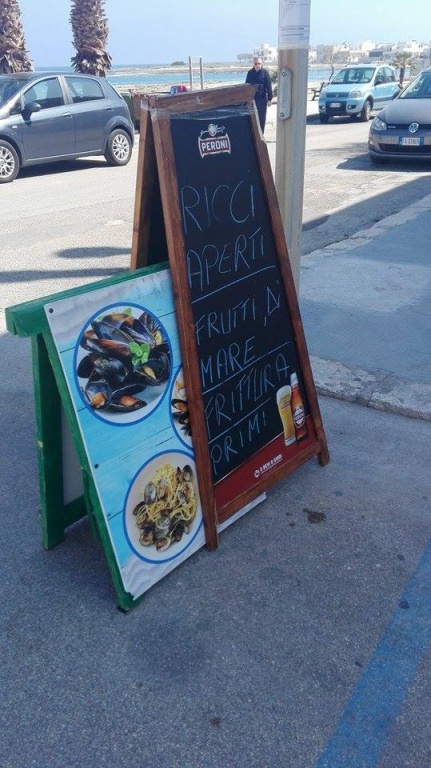 PERONI
RICCI
APERTI
FRUTTI DI
MARE
FRITTURA
PRIMI